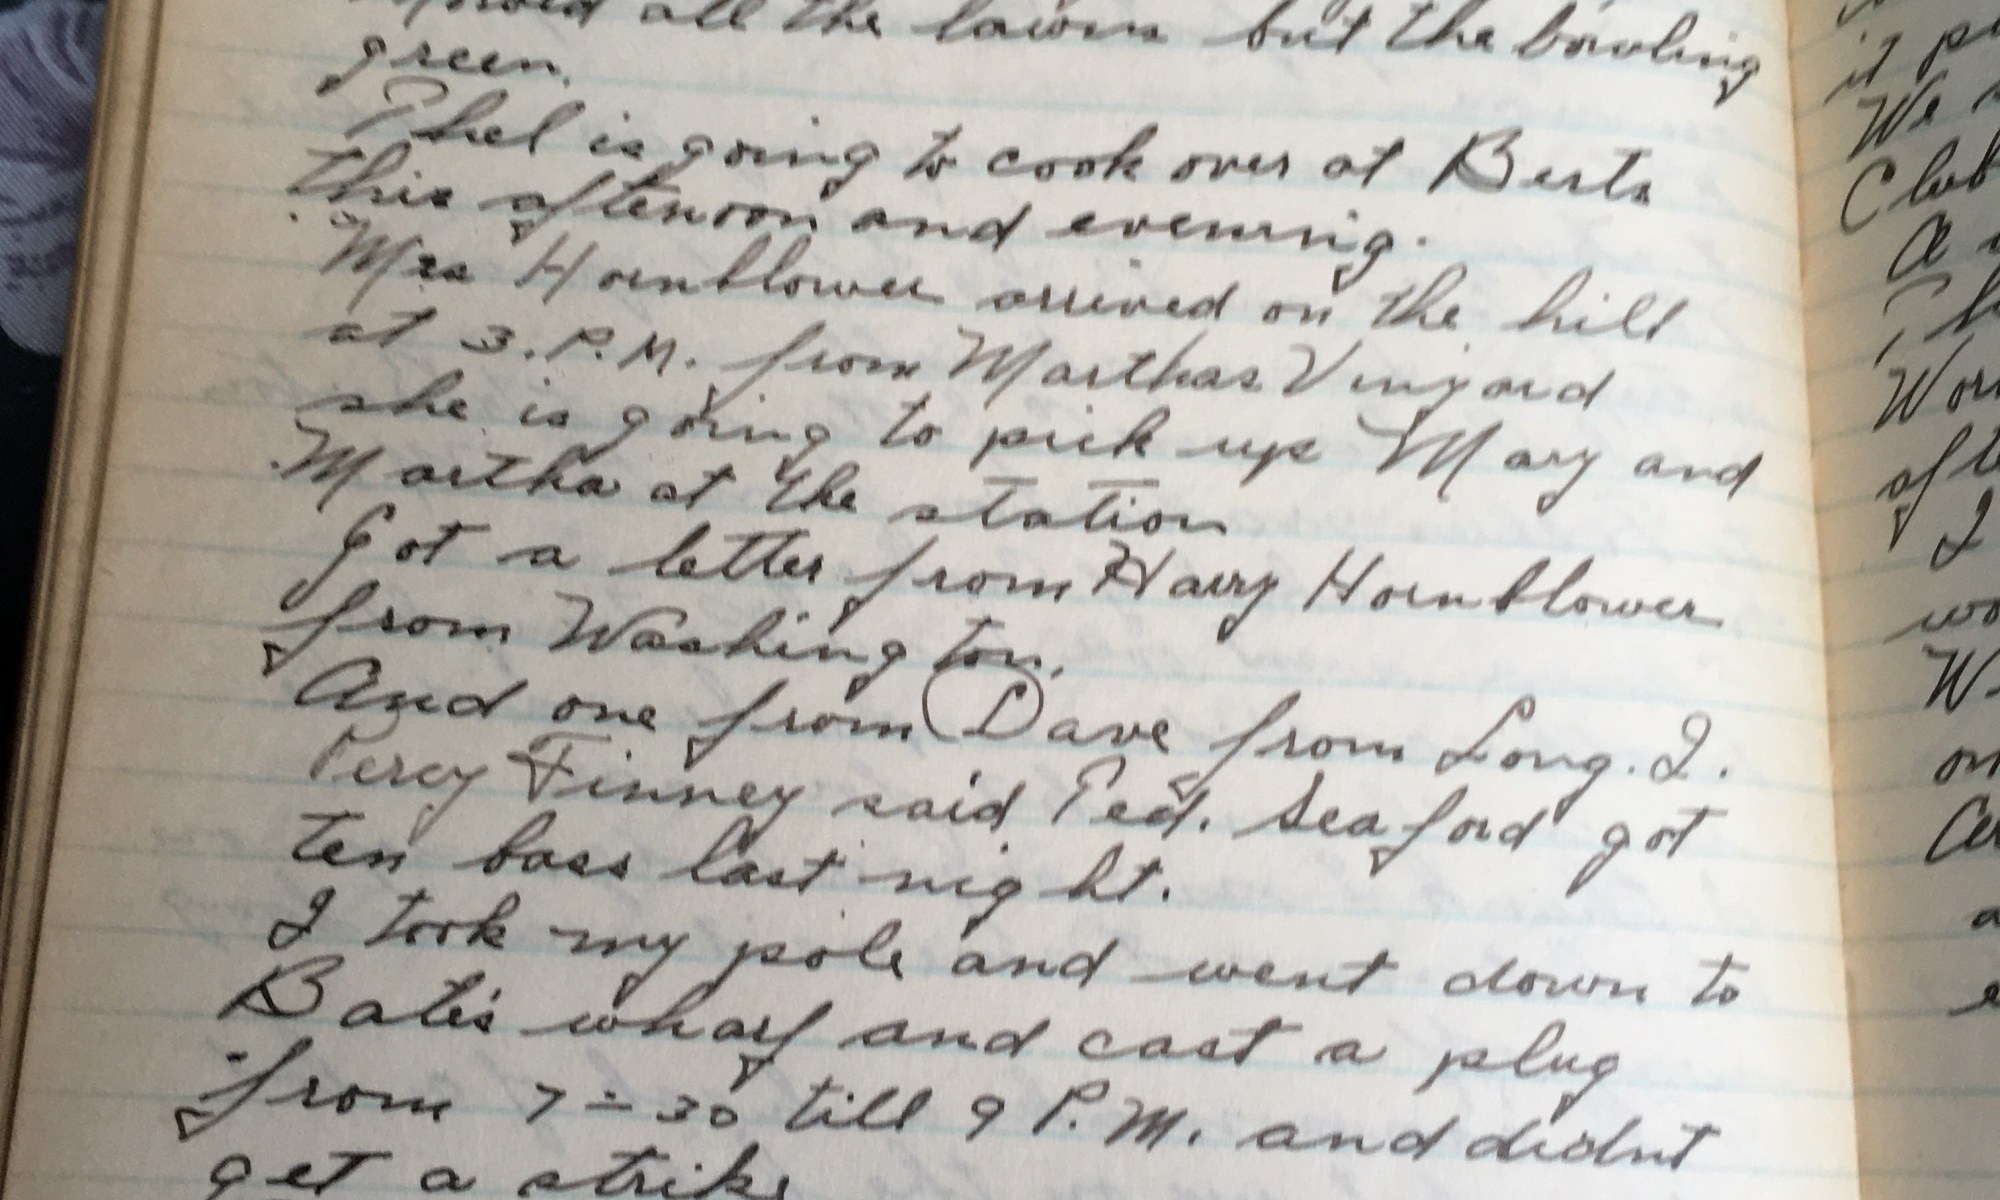 all the lawns but the bowling
green.
Phel is going to cook over at Berts
this afternoon and evening.
Mrs Hornblower arrived on the hill
at 3. P.M. from Marthas Vinyard
she is going to pick up Mary and
Martha at the station
Got a letter from Harry Hornblower
from Washington.
And one from Dave from Long. I.
Percy Finney said Ted. Seaford got
ten bass last night.
I took my pole and went down to
Bates wharf and cast a plug
from 7-30 till 9 P.M. and didnt
get a strike
it
We
Club
I